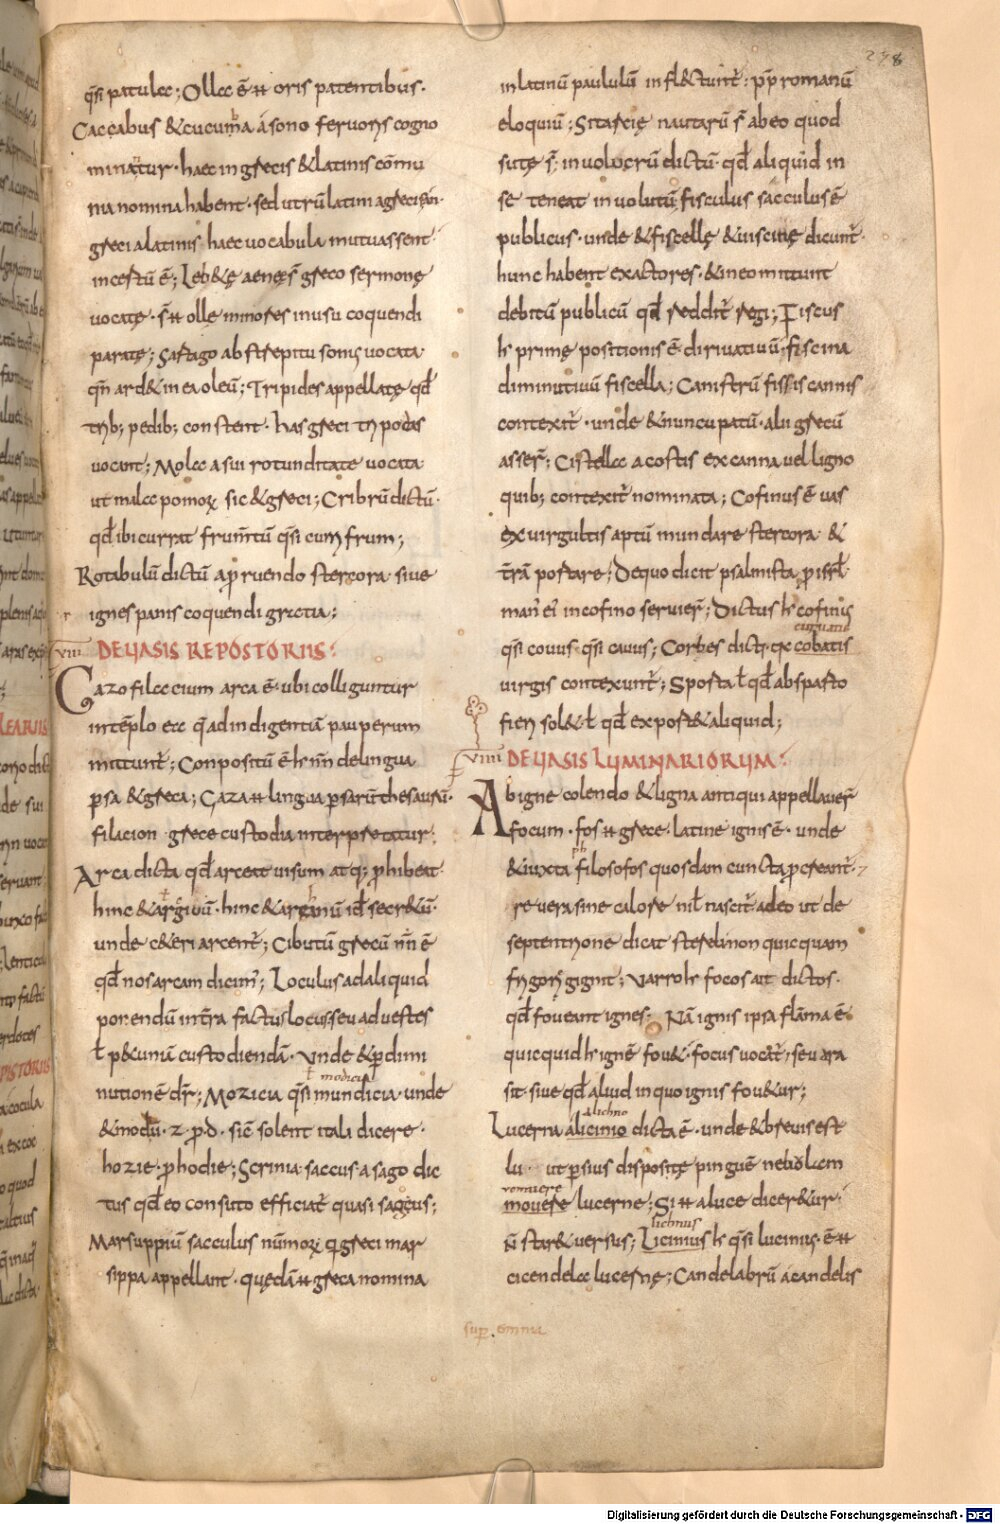 q̄si patulae; Ollae ē ħ oris patentibus.
Caccabus & cucuma á sono feruoris cogno
minatur. haec in grecis & latinis cōmu
nia nomina habent. sed utrū latini agrecis an
greci alatinis haec uocabula mutuassent
incertū ē; Leb&ę aeneęs̄ greco sermone
uocatę. s̄ ħ olle minores inusu coquendi
paratę; Sartago ab strepitu sonis uocata
qn̄ ard& in ea oleū; Tripides appellatę qđ
trib; pedib; constent. has greci tripodas
uocant; Molae a sui rotunditate uocata
ut malae pomoꝝ sic & greci; Cribrū dictū.
qđ ibi currat frum̄tū q̄si currifrum;
Rotabulū dictū a ꝓruendo stercora siue
ignes panis coquendi gratia;
VIII DE VASIS REPOSTORIIS:
Gazofilaecium arca ē. ubi colliguntur
intēplo ea q̄ ad indigentiā pauperum
mittunt̄; Conpositū ē h̄ nn̄ delingua
ꝑsa & greca; Gaza ħ lingua ꝑsarū thesaurū.
filacion grece custodia interpretatur;
Arca dicta qđ arceat uisum atq; ꝓhibeat.
hinc & argiuū. hinc & arganū id ē secr&ū.
unde c&eri arcent̄; Cibutū grecū nn̄ ē
qđ nos arcam dicim̄; Loculus ad aliquid
ponendū int̄ra factus locus seu ad uestes
ł p&uniā custodiendā. Unde & ꝑdimi
ł modicia
nutionē dr̄; Mozicia q̄si mundicia. unde
& modū. z. ꝓ .d. sic̄ solent itali dicere.
hozie ꝓ hodie; Scrinia saccus a sago dic
tus qđ eo consuto efficiat̄ quasi sagcus;
Marsuppiū sacculus nūmoꝝ q̄ greci mar
sippa appellant. quędā ħ greca nomina
278
inlatinū paululū infl&tunt̄. ꝓp̄ romanū
eloquiū; Sitarcię nautarū s̄ ab eo quod
sutę s̄; inuolucrū dictū. qđ aliquid in
se teneat inuolutū fisculus sacculus ē
publicus. unde & fiscellę & fiscinę dicunt̄.
hunc habent exactores. & in eo mittunt
debitū publicū qđ reddit̄ regi; Fiscus
h̄ primę positionis ē diriuatiuū. fiscina
diminitiuū fiscella; Canistrū fissis cannis
contexit̄. unde & nuncupatū. alii grecū
asser̄; Cistellae a costis ex canna uel ligno
quib; contexit̄ nominata; Cofinus ē uas
ex uirgultis aptū mundare stercora &
t̄rā portare; De quo dicit psalmista ꝓ isr̄l
man' ei' in cofino seruier̄; Dictus h̄ cofinis
curuatis
q̄si couus q̄si cauus; Corbes dict̄ qx cobatis
uirgis contexunt̄; Sporta ł qđ ab sparto
fieri sol& ł qđ export& aliquid;
VIIII DE VASIS LUMINARIORUM:
Abigne colendo & ligna antiqui appellauer̄
focum. fos ħ grece. latine ignis ē. unde
ph
& iuxta filosofos quosdam cuncta ꝓcreant̄.
re uera sine calore nil nascit̄ adeo ut de
septentrione dicat sterelinon quicquam
frigore gignit; Varro h̄ focos ait dictos.
qđ foueant ignes. Nā ignis ipsa flāma ē.
quicquid h̄ ignē fou&. focus uocat̄; seu ara
sit. siue qđ aliud in quo ignis fou&ur;
alichno
Lucerna alicinio dicta ē. unde & breuis est
lu. ut ꝑsius dispositę pinguē nebulam
uomuere
mouere lucerne; Si ħ a luce dicer&ur
lichnus
n̄ star& uersus; Licinius h̄ q̄si lucinus. ē ħ
cicendelae lucernę; Candelabrū a candelis
suꝑ. omnia
Digitalisierung gefördert durch die Deutsche Forschungsgemeinschaft - DFG